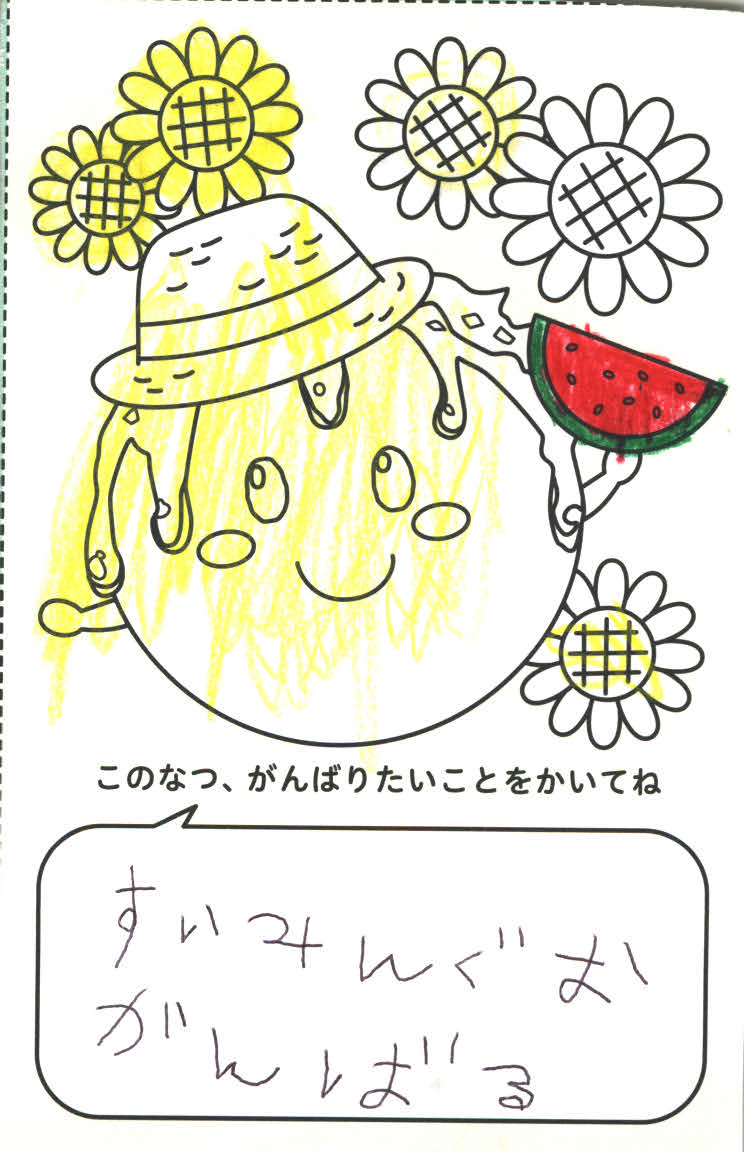 このなつ、がんばりたいことをかいてね
すいみんぐお
がんばる